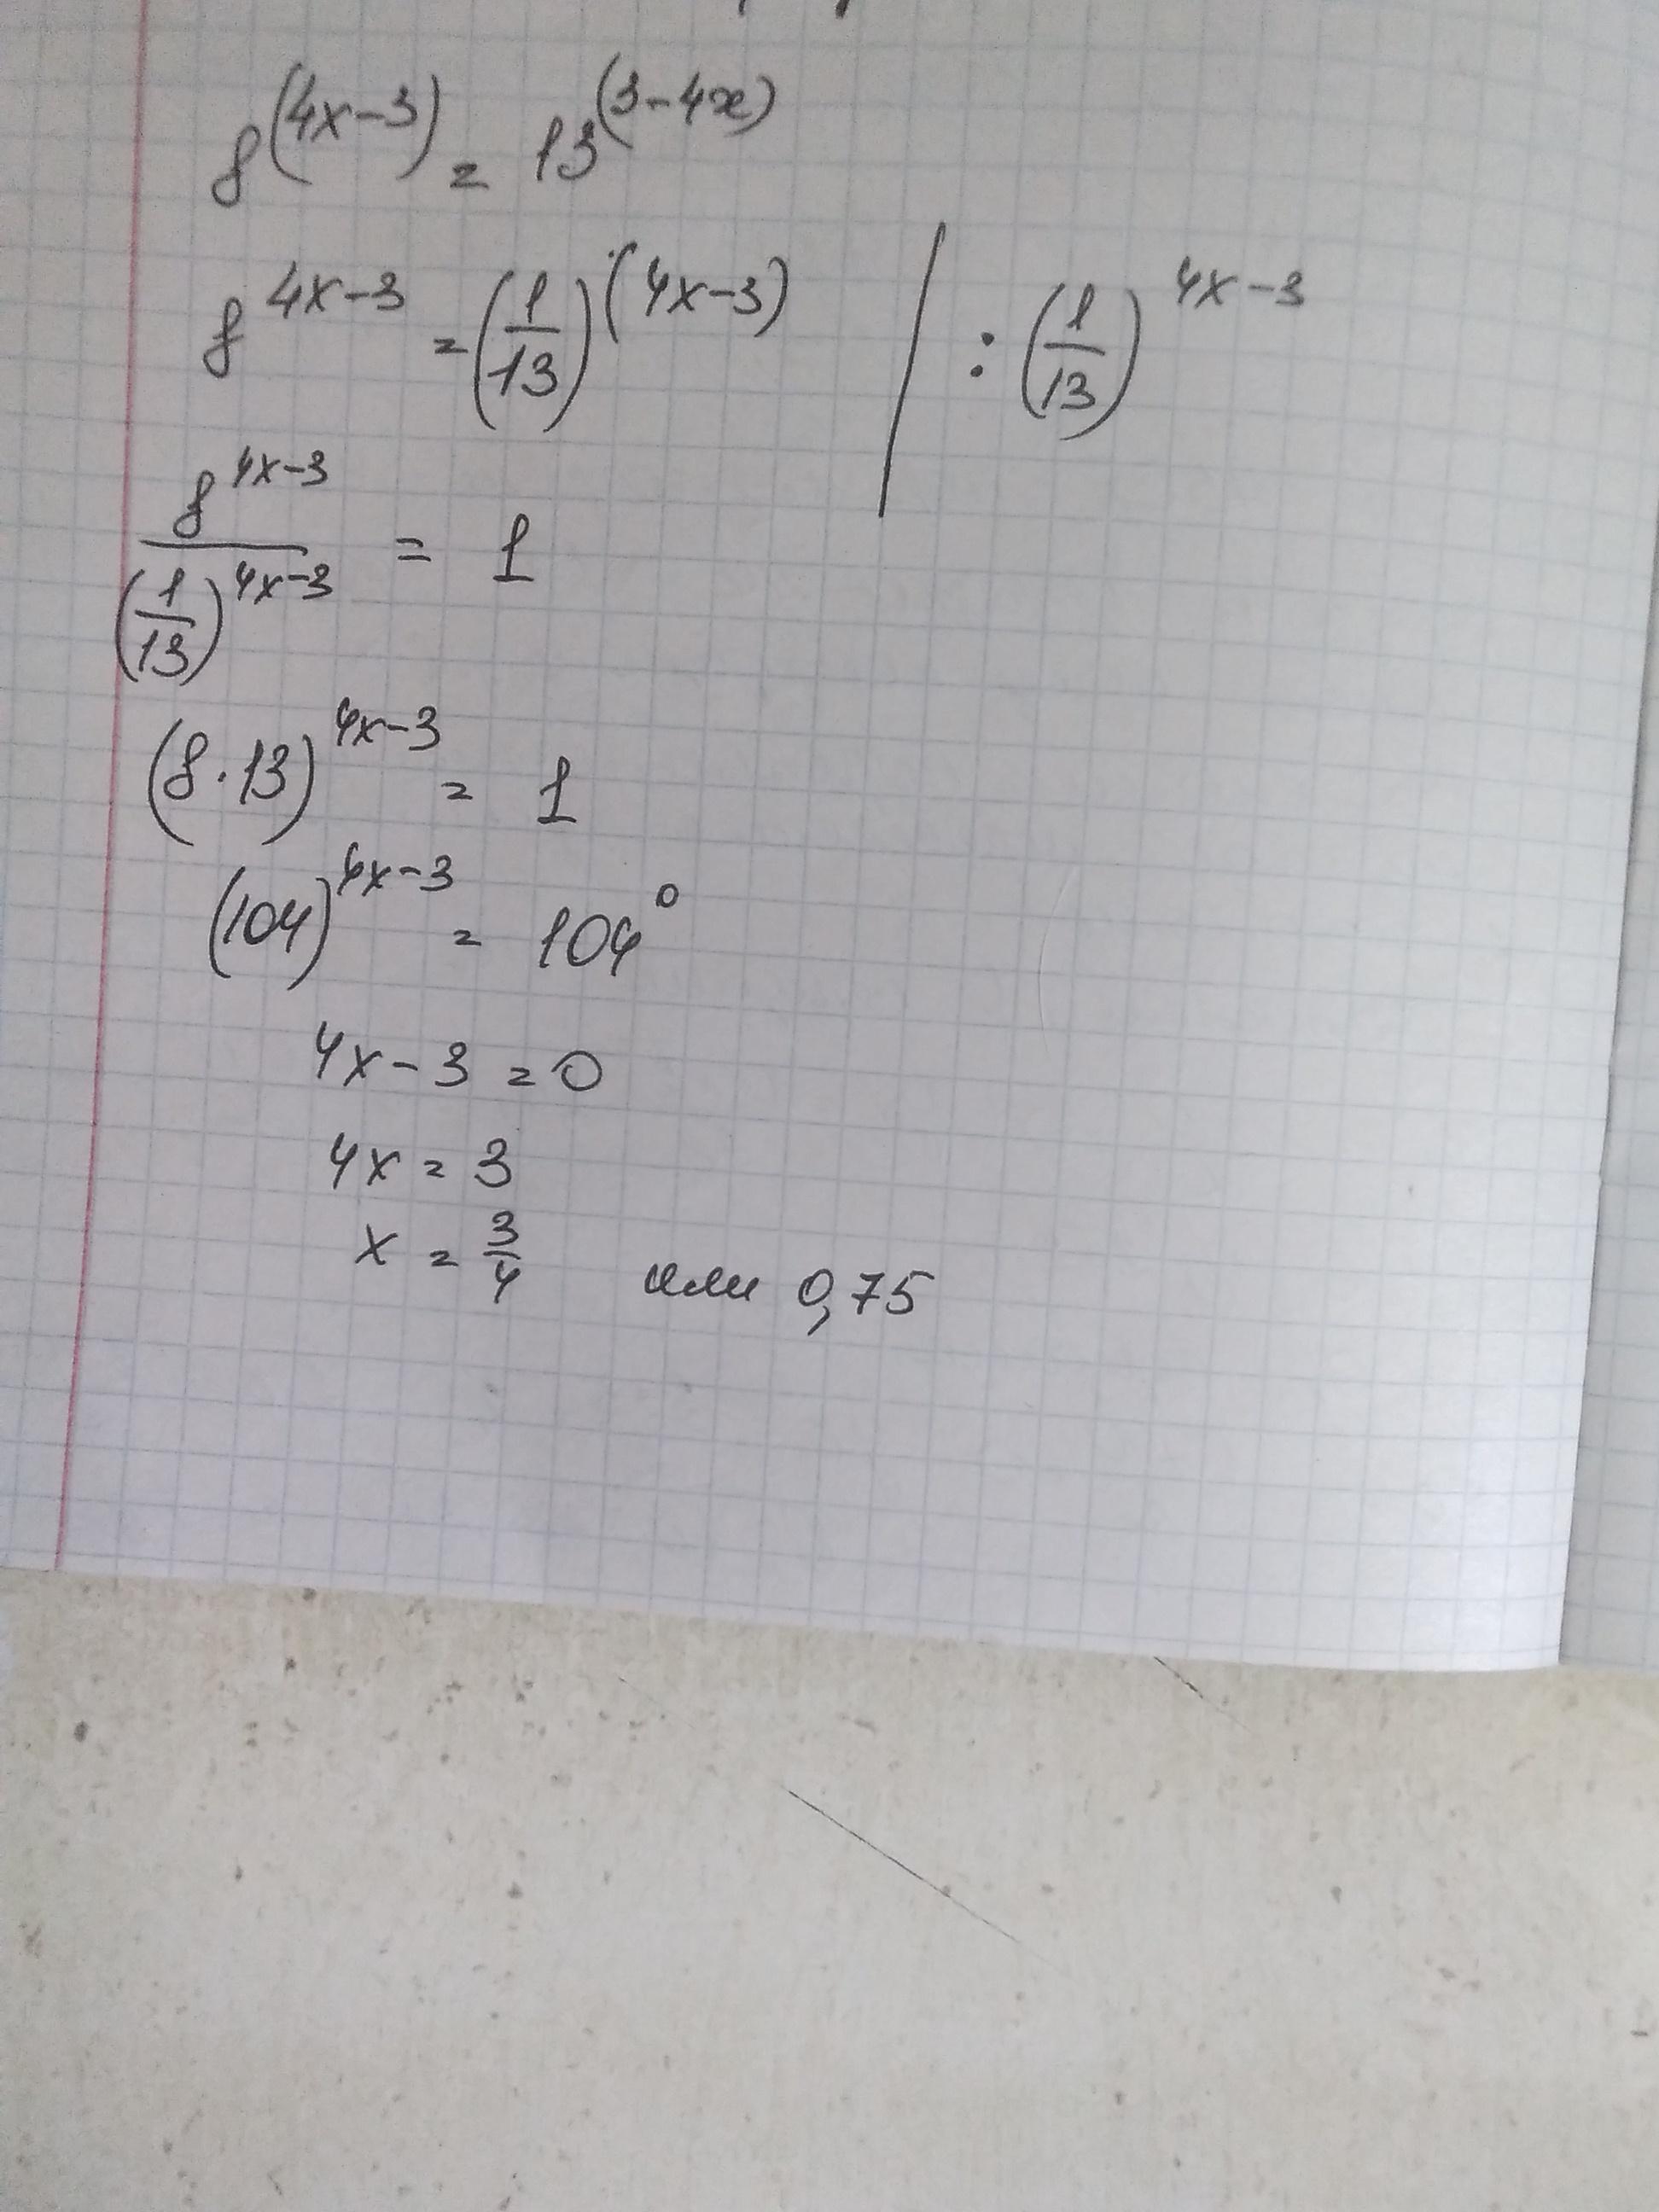 8^(4x-3) = 13^(3-4x)
8^{4x-3} = (1/13)^(4x-3) | : (1/13)^{4x-3}
8^{4x-3} / (1/13)^{4x-3} = 1
(8·13)^{4x-3} = 1
(104)^{4x-3} = 104^0
4x-3 = 0
4x = 3
x = 3/4 или 0,75